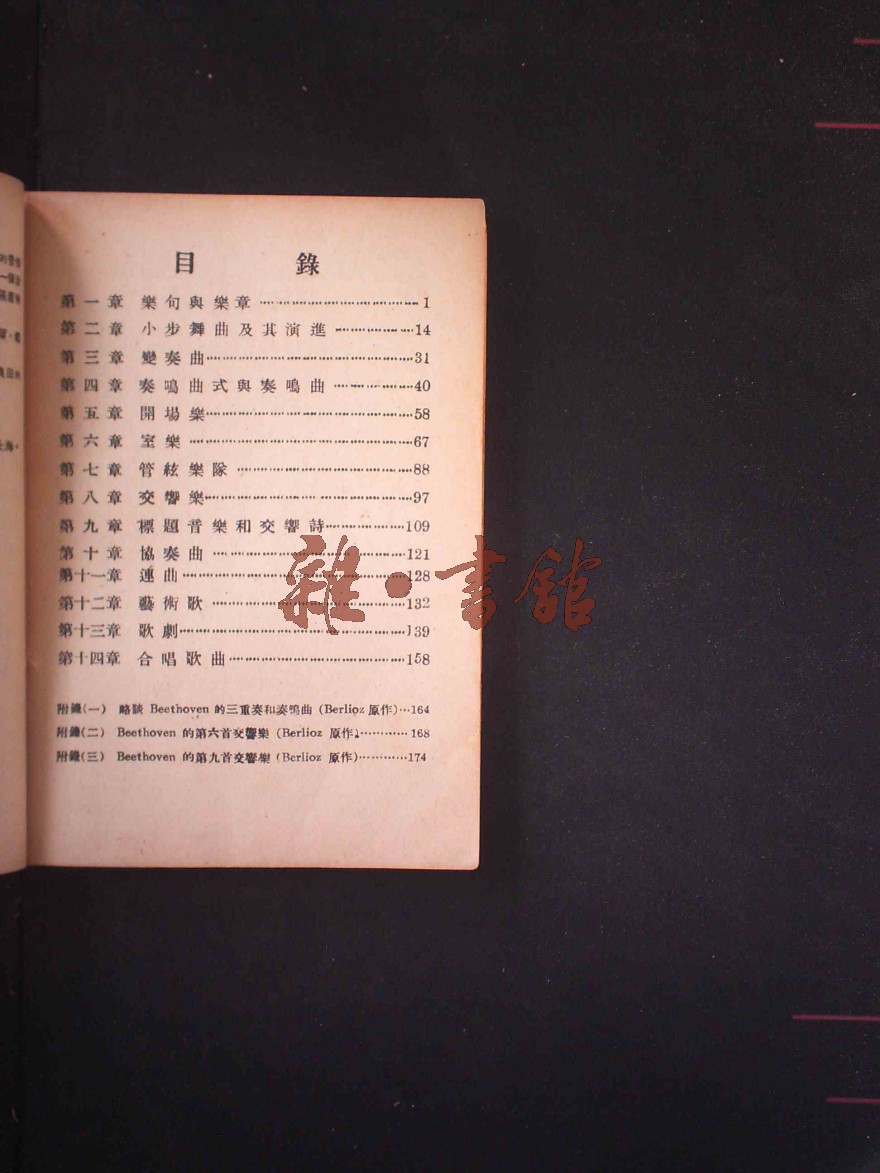 目錄
第一章 樂句與樂章…………………………1
第二章 小步舞曲及其演進……………14
第三章 變奏曲…………………………………31
第四章 奏鳴曲式與奏鳴曲……………40
第五章 開場樂…………………………………58
第六章 室樂……………………………………67
第七章 管絃樂隊……………………………88
第八章 交響樂…………………………………97
第九章 標題音樂和交響詩……………109
第十章 協奏曲………………………………121
第十一章 連曲………………………………128
第十二章 藝術歌……………………………132
第十三章 歌劇………………………………139
第十四章 合唱歌曲…………………………158
附錄(一) 略談 Beethoven 的三重奏和奏鳴曲 (Berlioz 原作)…164
附錄(二) Beethoven 的第六首交響樂 (Berlioz 原作)…………168
附錄(三) Beethoven 的第九首交響樂 (Berlioz 原作)…………174
雜·書館